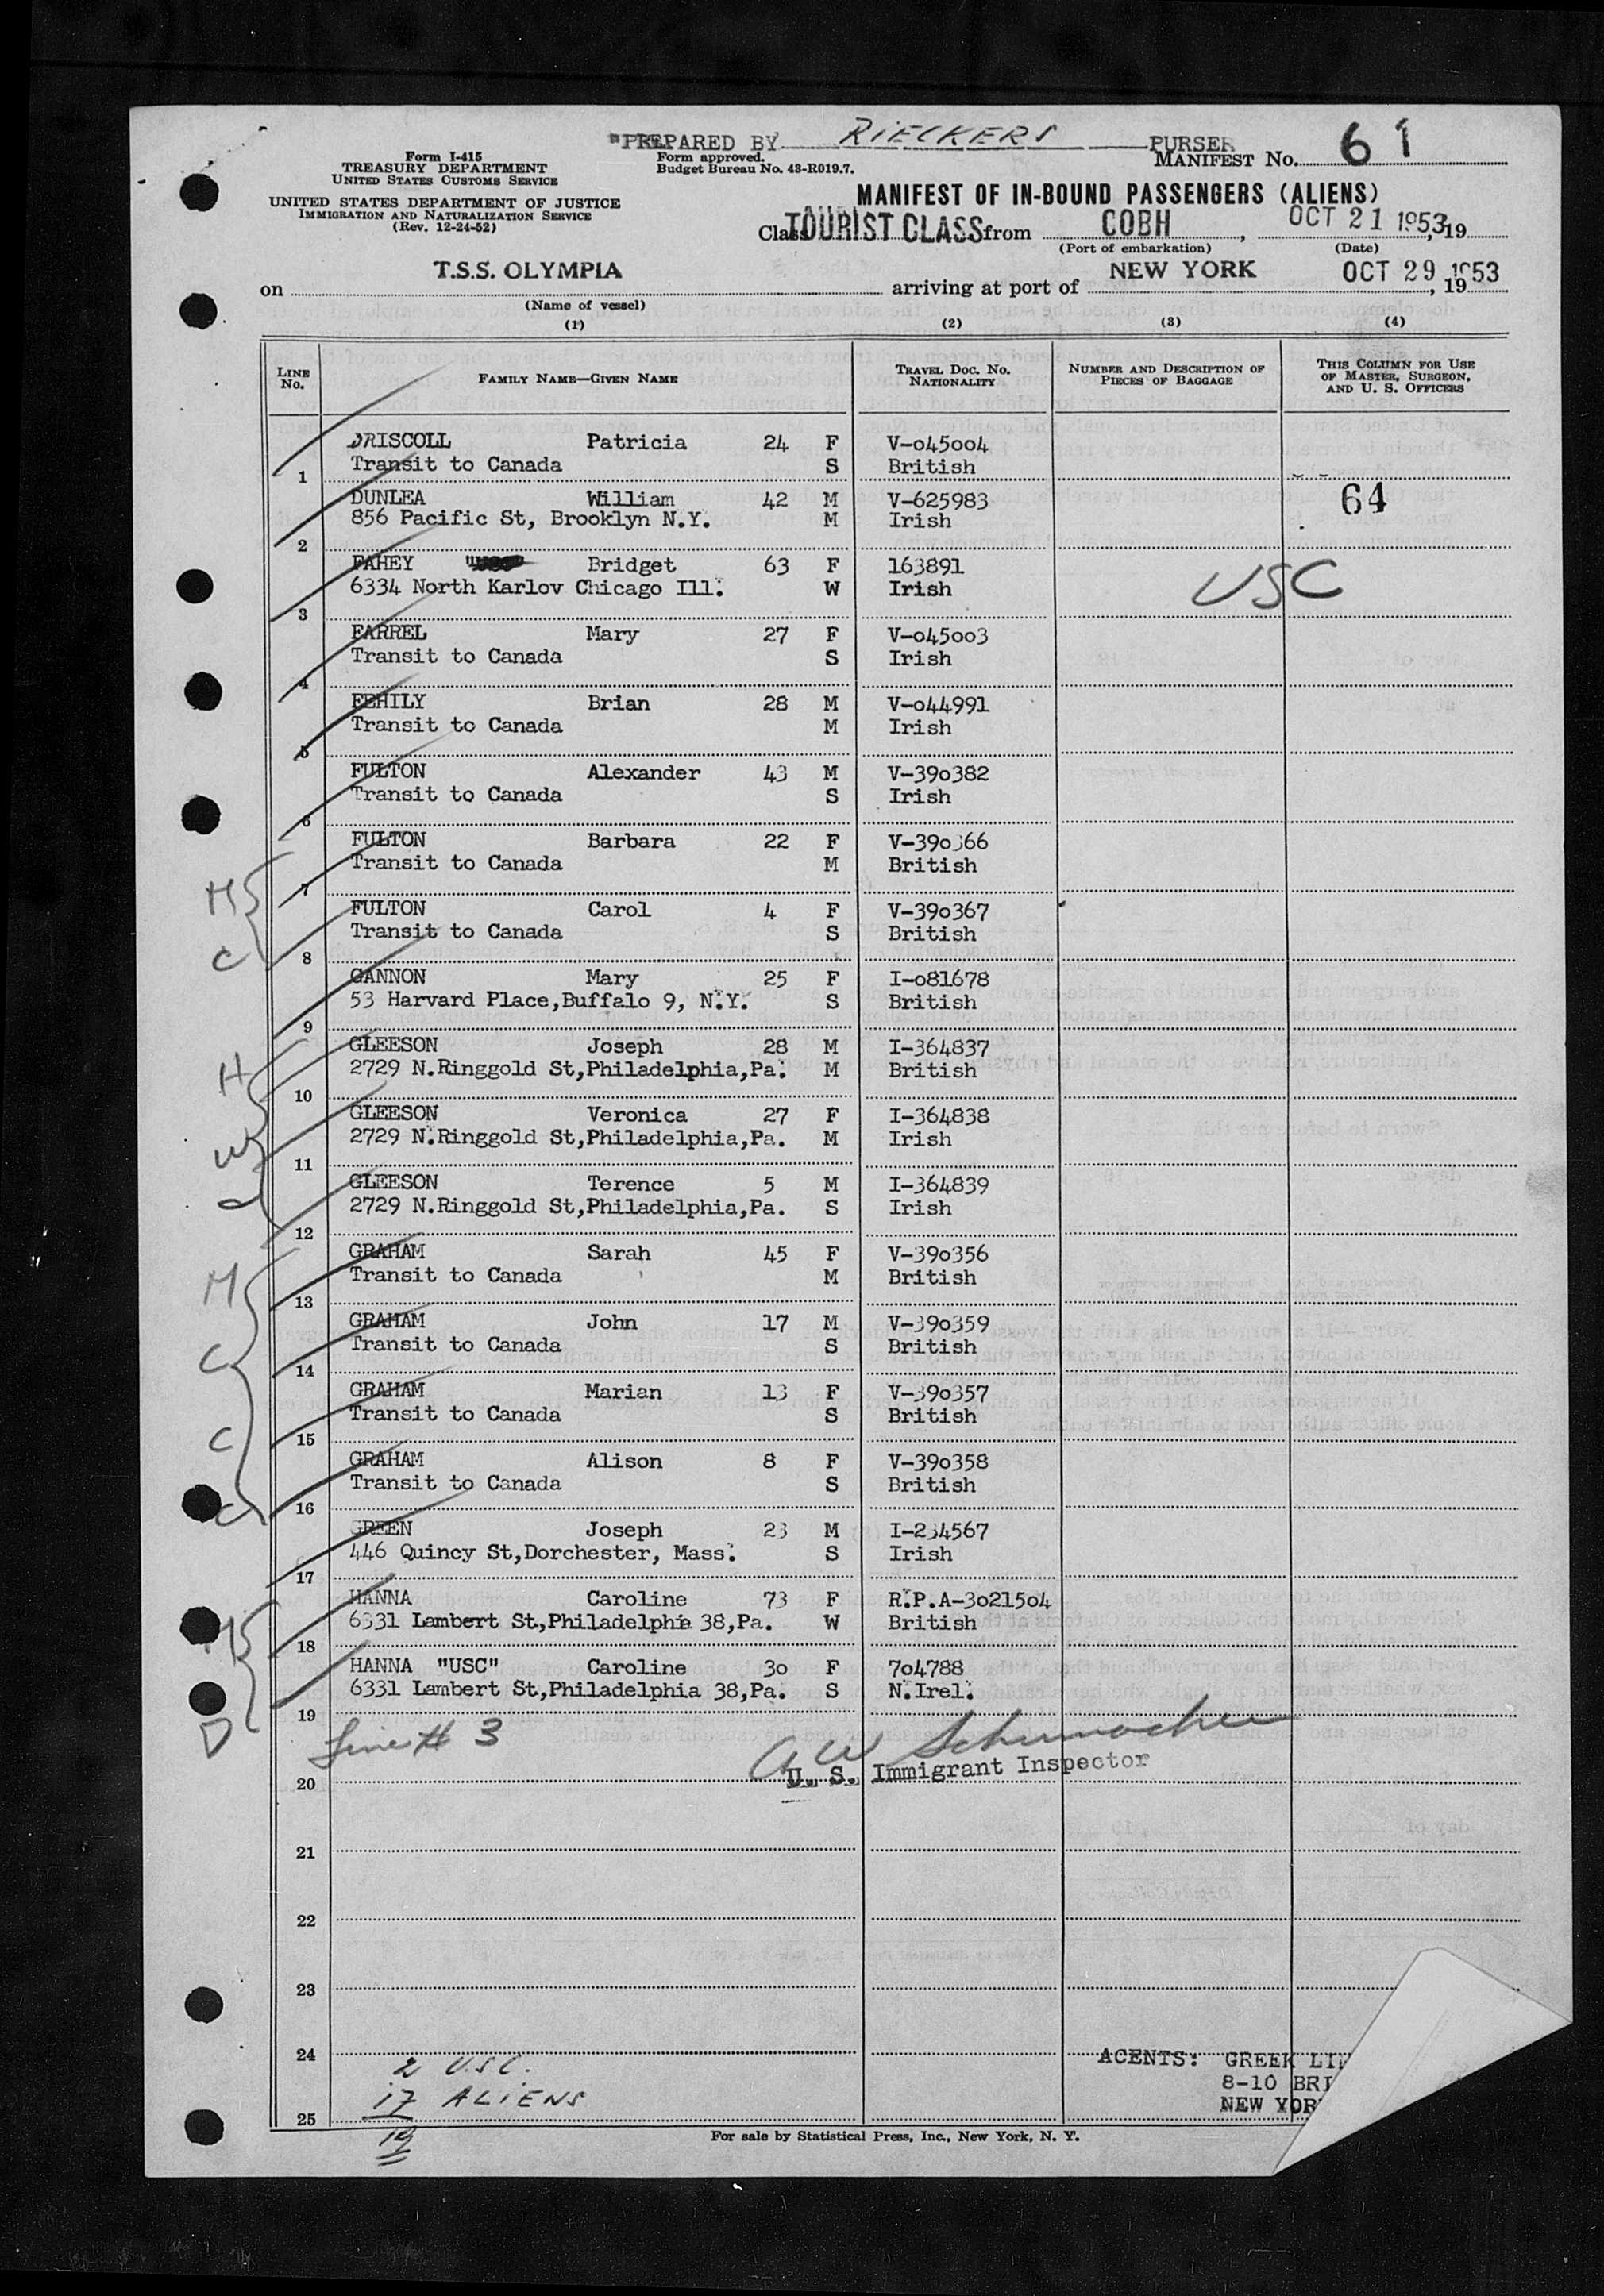 PREPARED BY RIECKERS PURSER
Form I-415
TREASURY DEPARTMENT
UNITED STATES CUSTOMS SERVICE
Form approved.
Budget Bureau No. 43-R019.7.
MANIFEST No. 61
UNITED STATES DEPARTMENT OF JUSTICE
IMMIGRATION AND NATURALIZATION SERVICE
(Rev. 12-24-52)
MANIFEST OF IN-BOUND PASSENGERS (ALIENS)
Class TOURIST CLASS from COBH, OCT 21 1953, 19
(Port of embarkation) (Date)
on T.S.S. OLYMPIA arriving at port of NEW YORK OCT 29 1953, 19
(Name of vessel)
(1) (2) (3) (4)
LINE No. FAMILY NAME—GIVEN NAME TRAVEL DOC. No. NATIONALITY NUMBER AND DESCRIPTION OF PIECES OF BAGGAGE THIS COLUMN FOR USE OF MASTER, SURGEON, AND U. S. OFFICERS
DRISCOLL Patricia 24 F V-045004
1 Transit to Canada S British
DUNLEA William 42 M V-625983 64
2 856 Pacific St, Brooklyn N.Y. M Irish
FAHEY Bridget 63 F 163891
3 6334 North Karlov Chicago Ill. W Irish USC
FARREL Mary 27 F V-045003
4 Transit to Canada S Irish
FEHILY Brian 28 M V-044991
5 Transit to Canada M Irish
FULTON Alexander 43 M V-390382
6 Transit to Canada S Irish
FULTON Barbara 22 F V-390366
M 7 Transit to Canada M British
FULTON Carol 4 F V-390367
C 8 Transit to Canada S British
GANNON Mary 25 F I-081678
9 53 Harvard Place, Buffalo 9, N.Y. S British
GLEESON Joseph 28 M I-364837
H 10 2729 N.Ringgold St,Philadelphia,Pa. M British
GLEESON Veronica 27 F I-364838
W 11 2729 N.Ringgold St,Philadelphia,Pa. M Irish
GLEESON Terence 5 M I-364839
12 2729 N.Ringgold St,Philadelphia,Pa. S Irish
GRAHAM Sarah 45 F V-390356
M 13 Transit to Canada M British
GRAHAM John 17 M V-390359
C 14 Transit to Canada S British
GRAHAM Marian 13 F V-390357
C 15 Transit to Canada S British
GRAHAM Alison 8 F V-390358
C 16 Transit to Canada S British
GREEN Joseph 23 M I-234567
17 446 Quincy St,Dorchester, Mass. S Irish
HANNA Caroline 73 F R.P.A-3021504
M 18 6331 Lambert St,Philadelphia 38,Pa. W British
HANNA "USC" Caroline 30 F 704788
19 6331 Lambert St,Philadelphia 38,Pa. S N.Irel.
D Line # 3 A W Schumacher
20 U. S. Immigrant Inspector
21
22
23
24 2 USC. AGENTS: GREEK LIN
17 ALIENS 8-10 BRI
25 NEW YOR
19
For sale by Statistical Press, Inc., New York, N. Y.